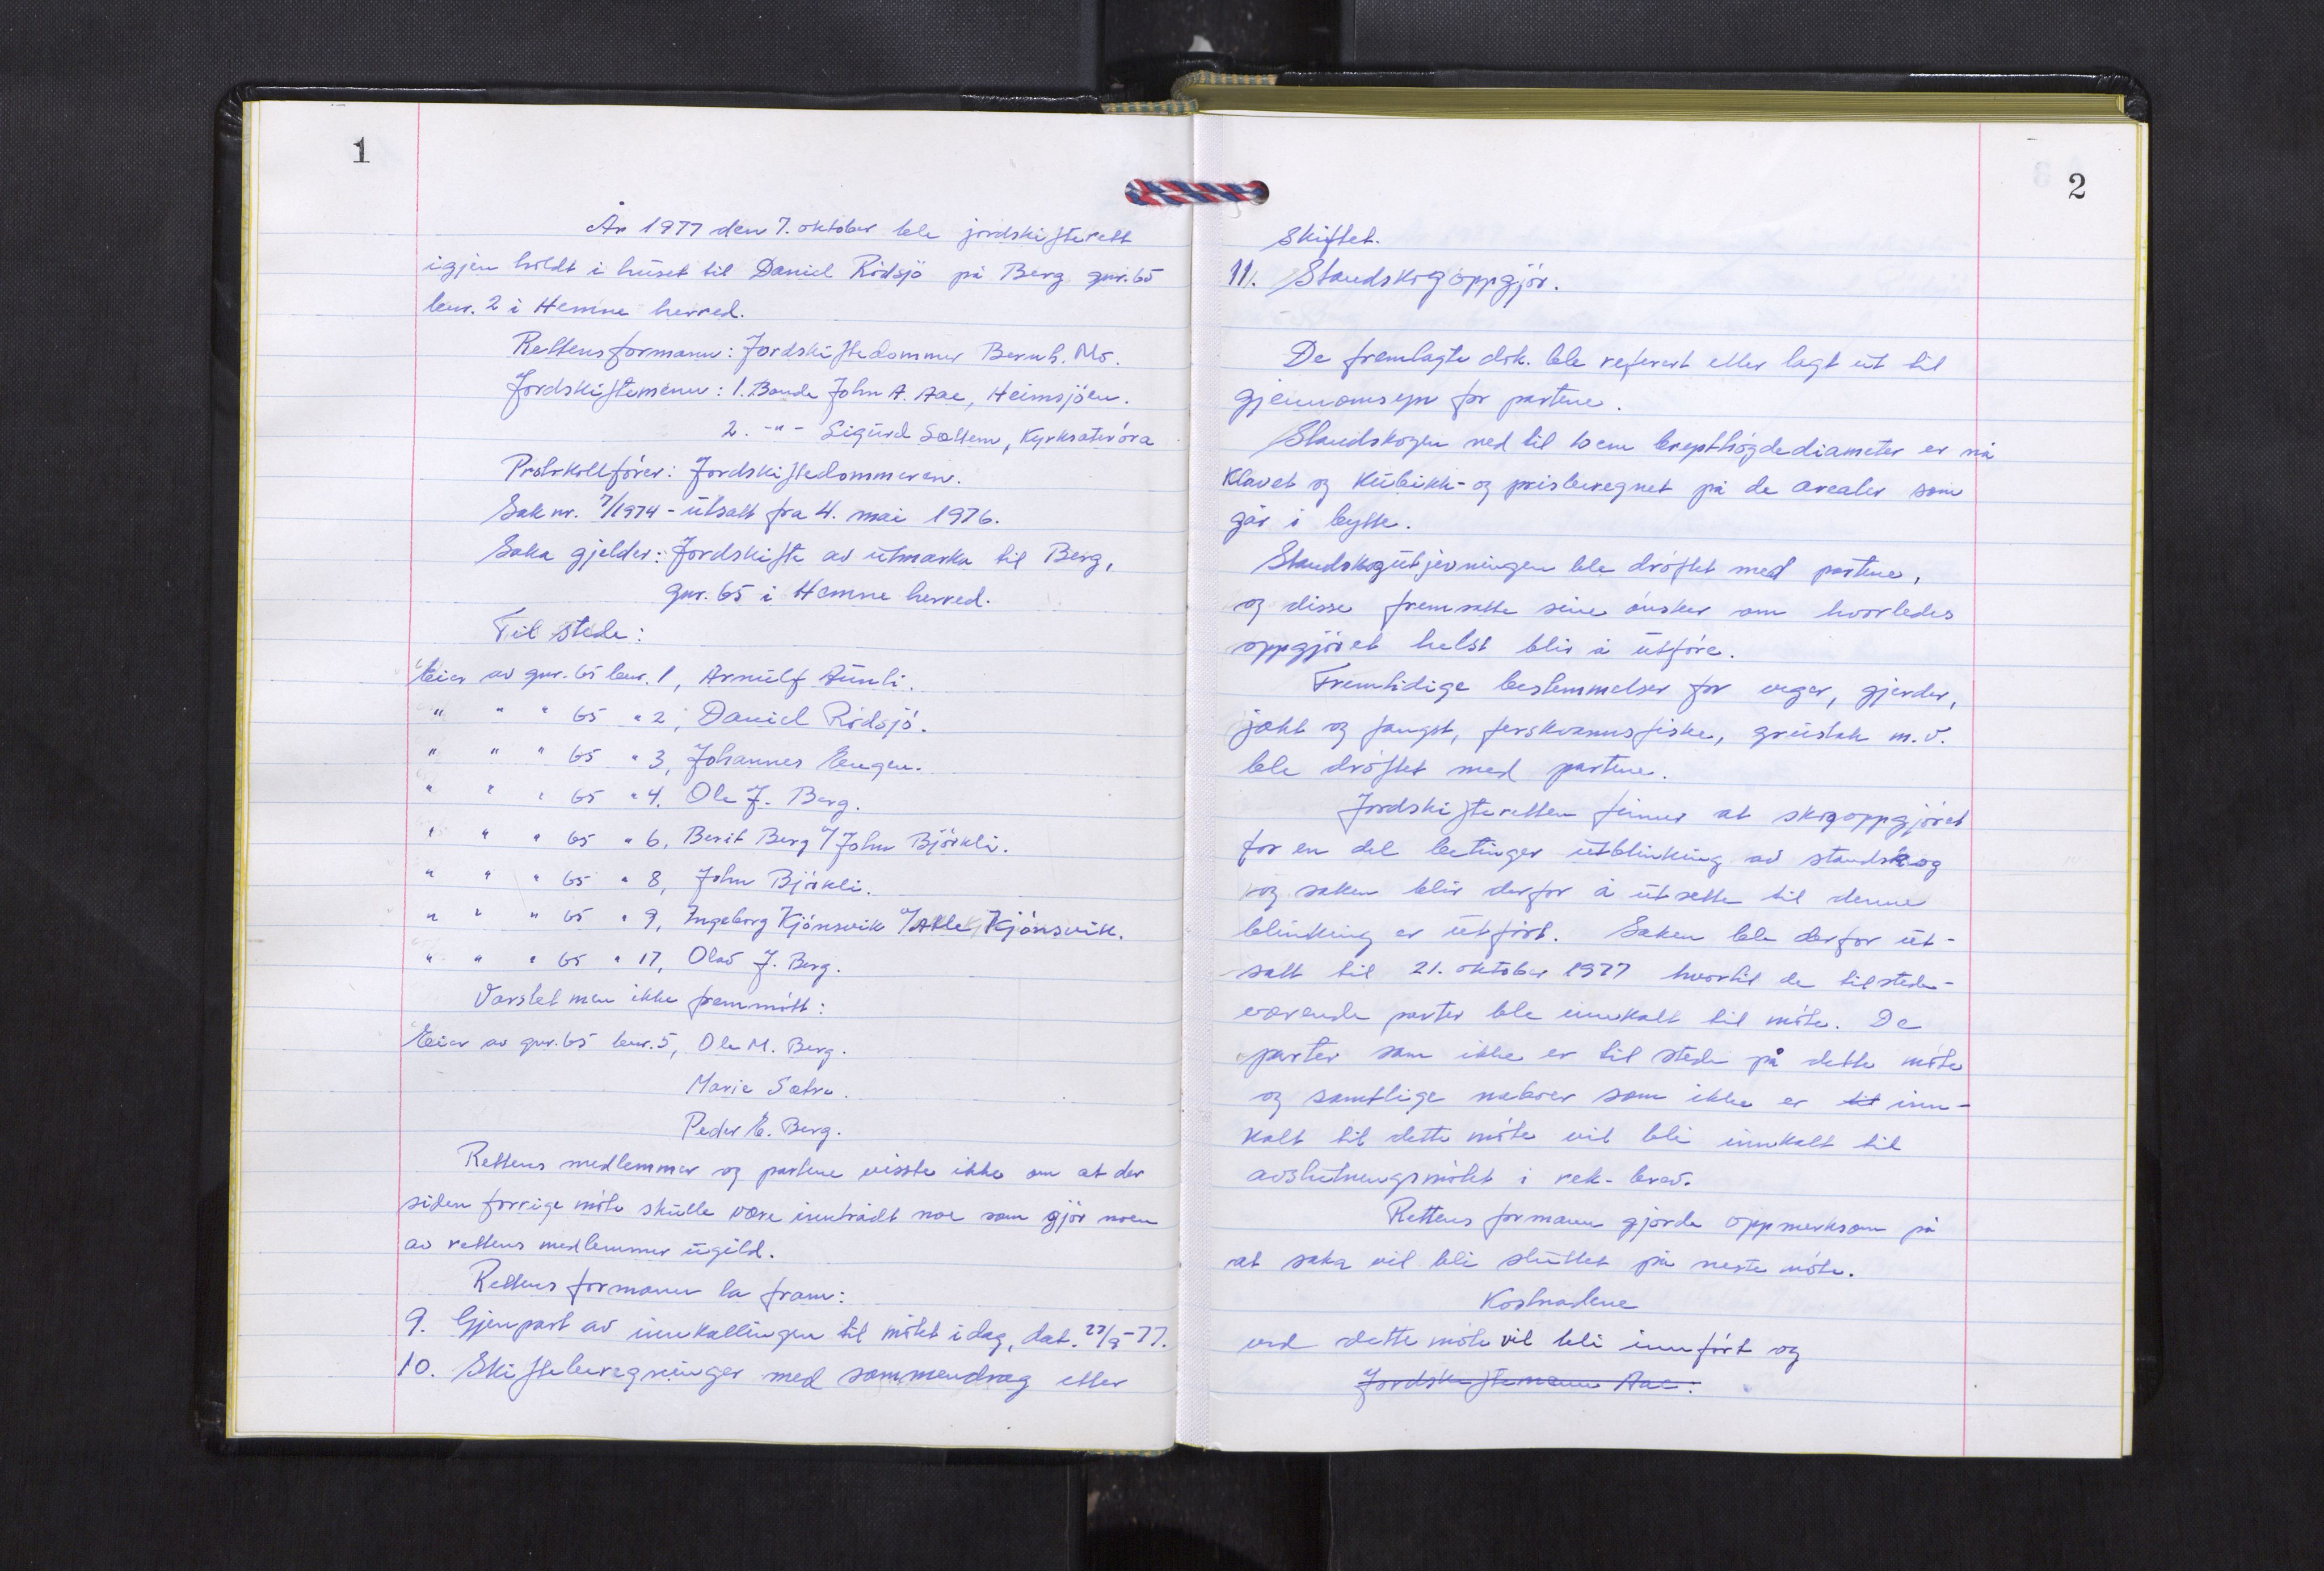 1
År 1977 den 7. oktober ble jordskifterett
igjen holdt i huset til Daniel Rödsjö på Berg gnr. 65
bnr. 2 i Hemne herred.
Rettens formann: Jordskiftedommer Bernh. Mo.
Jordskiftemenn: 1. Bonde John A. Aae, Heimsjöen.
2. -"- Sigurd Sæltem, Kyrksæteröra
Protokollförer: Jordskiftedommeren.
Sak nr. 7/1974 - utsatt fra 4. mai 1976.
Saka gjelder: Jordskifte av utmarka til Berg,
gnr. 65 i Hemne herred.
Til stede:
Eier av gnr. 65 bnr. 1, Arnulf Aunli.
" " " 65 " 2, Daniel Rödsjö.
" " " 65 " 3, Johannes Engen.
" " " 65 " 4. Ole J. Berg.
" " " 65 " 6, Berit Berg v/ John Björkli.
" " " 65 " 8, John Björkli.
" " " 65 " 9, Ingeborg Kjönsvik v/ Atle Kjönsvik.
" " " 65 " 17, Olav J. Berg.
Varslet men ikke frammött:
Eier av gnr. 65 bnr. 5, Ole M. Berg.
Marie Sætre.
Peder E. Berg.
Rettens medlemmer og partene visste ikke om at der
siden forrige möte skulle være inntrådt noe som gjör noen
av rettens medlemmer ugild.
Rettens formann la fram:
9. Gjenpart av innkallingen til mötet i dag, dat. 27/9-77.
10. Skifteberegninger med sammendrag etter
2
Skiftet.
11. Standskogoppgjör.
De fremlagte dok. ble referert eller lagt ut til
gjennomsyn for partene.
Standskogen ned til 10 cm brysthögdediameter er nå
klavet og kubikk- og prisberegnet på de arealer som
går i bytte.
Standskogutjevningen ble dröftet med partene,
og disse fremsatte sine önsker om hvorledes
oppgjöret helst blir å utföre.
Fremtidige bestemmelser for veger, gjerder,
jakt og fangst, ferskvannsfiske, grustak m.v.
ble dröftet med partene.
Jordskifteretten finner at skogoppgjöret
for en del betinger utblinking av standskog
og saken blir derfor å utsette til denne
blinking er utfört. Saken ble derfor ut-
satt til 21. oktober 1977 hvortil de tilstede-
værende parter ble innkalt til möte. De
parter som ikke er til stede på dette möte
og samtlige naboer som ikke er til inn-
kalt til dette möte vil bli innkalt til
avslutningsmötet i rek. brev.
Rettens formann gjorde oppmerksom på
at saka vil bli sluttet på neste möte.
Kostnadene
ved dette möte vil bli innfört og
Jordskiftemann Aae: